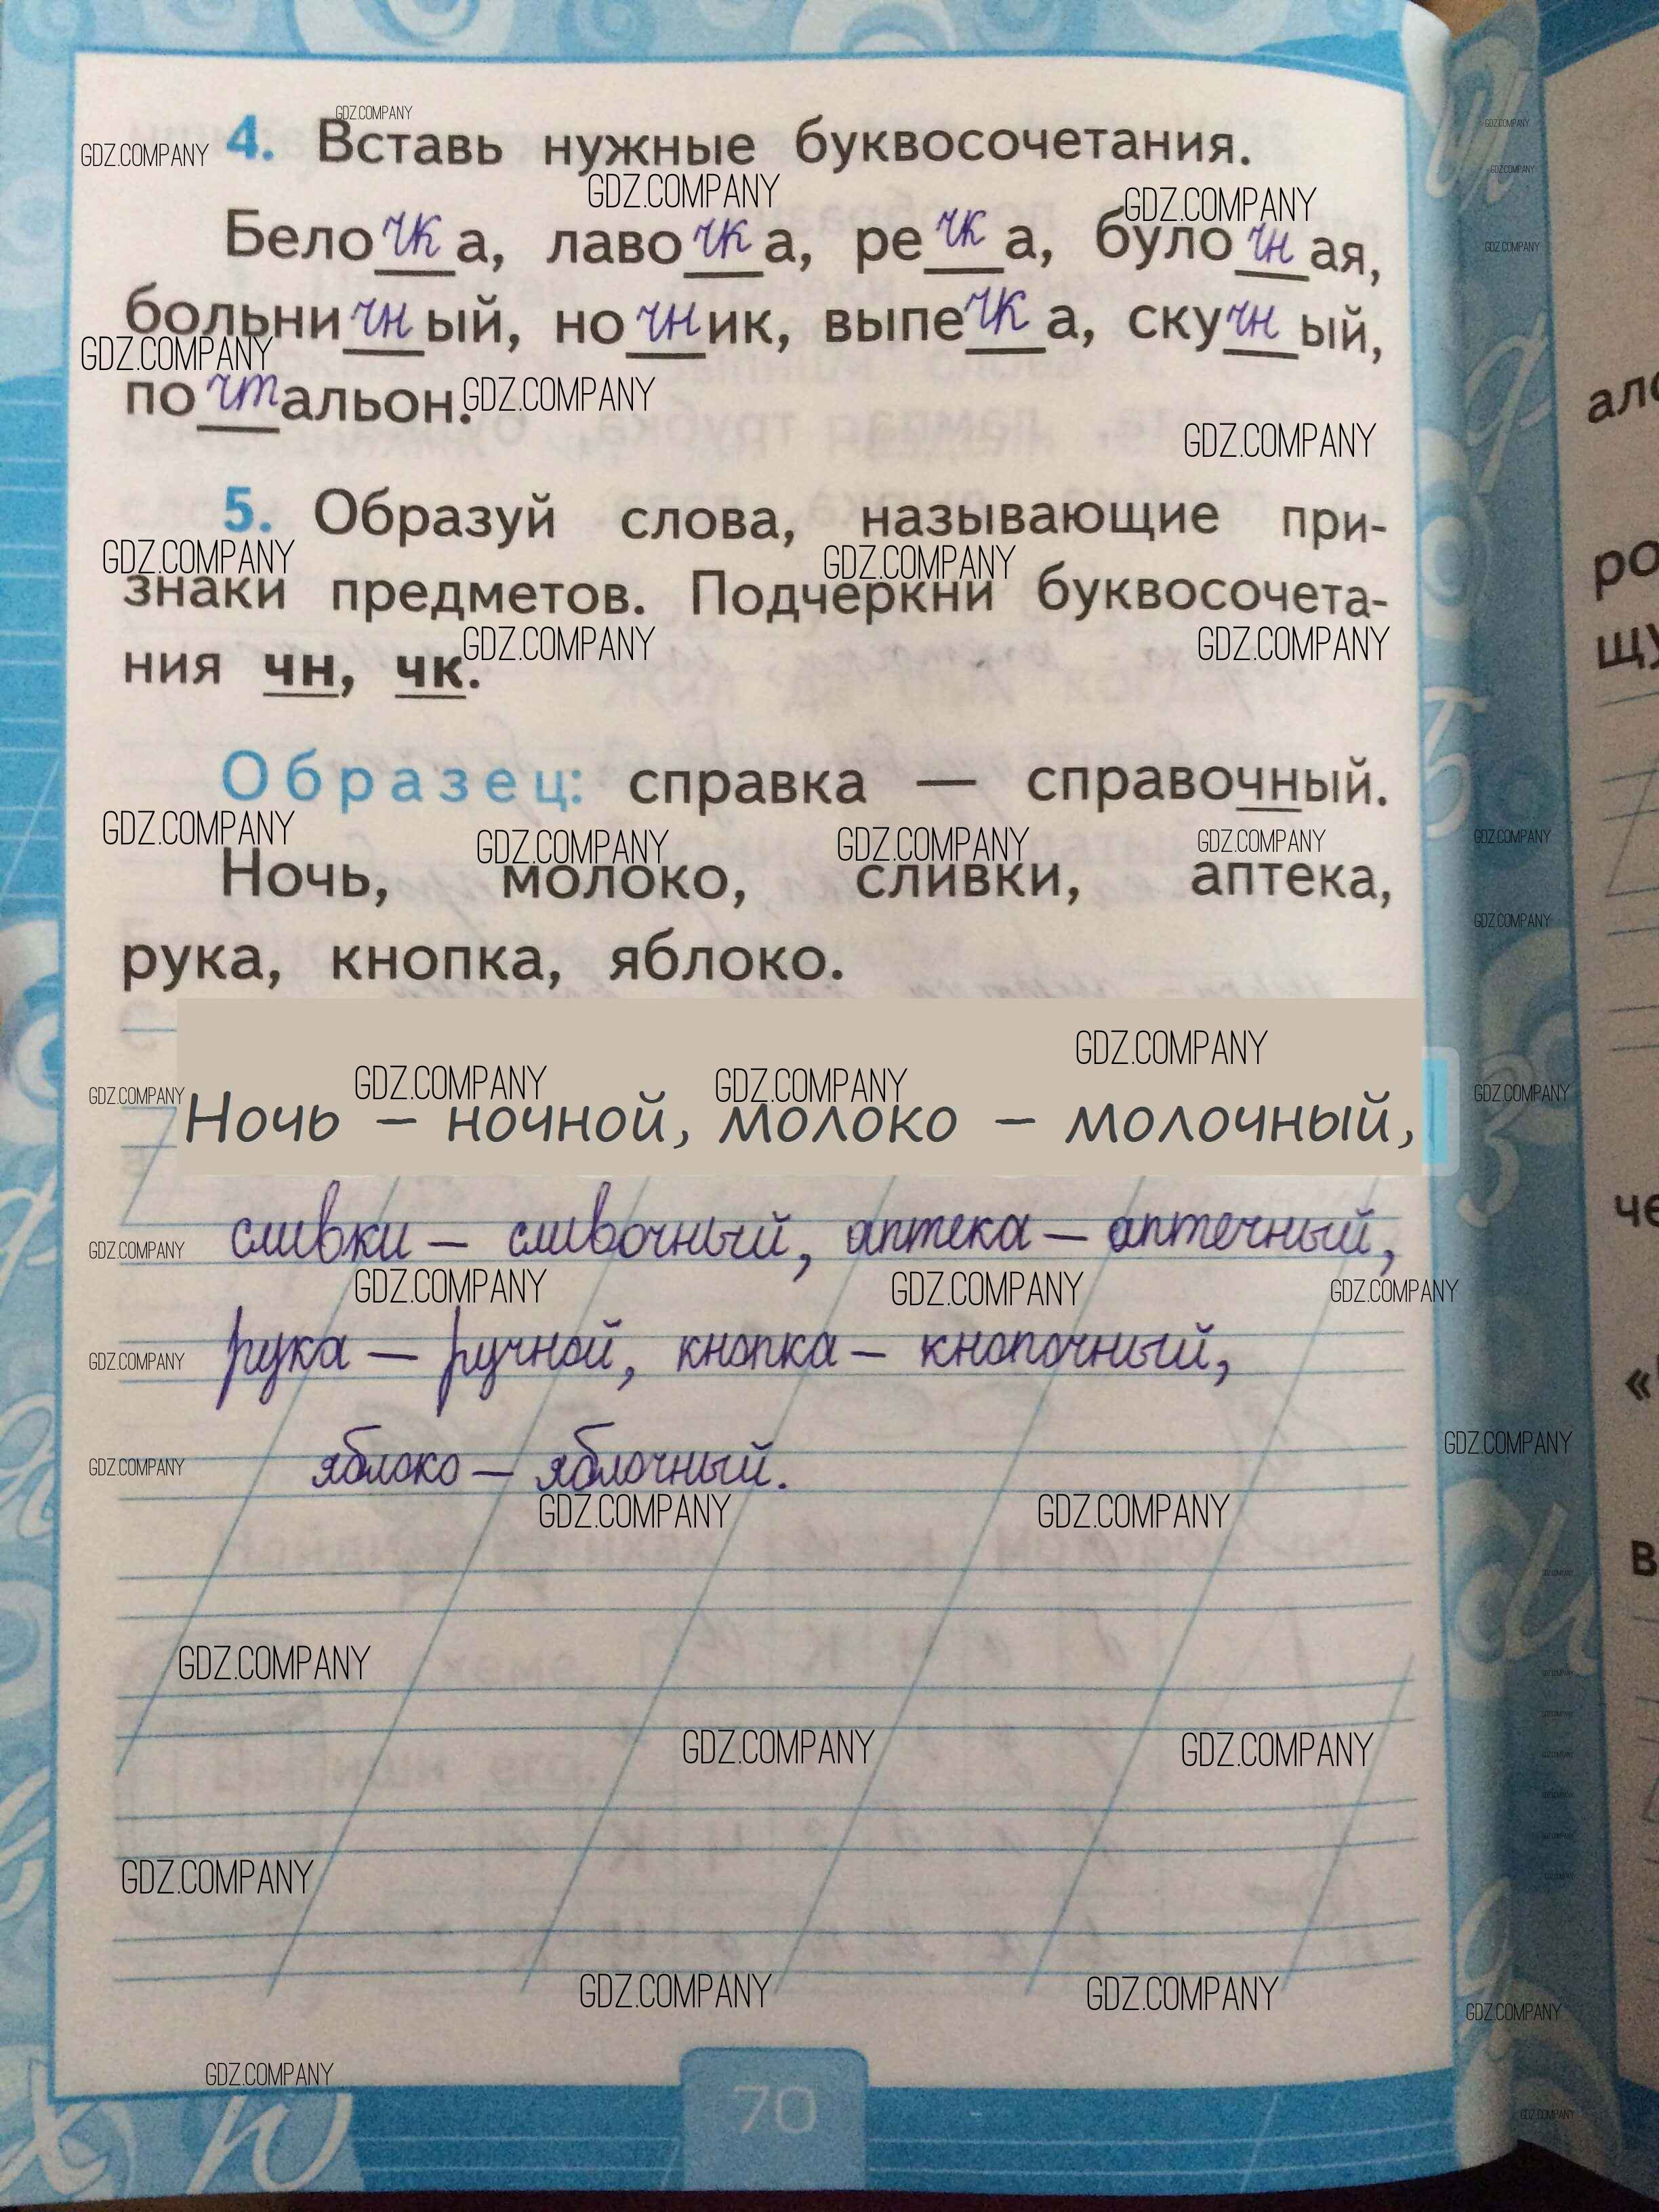 4. Вставь нужные буквосочетания.
Белочка, лавочка, речка, булочная,
больничный, ночник, выпечка, скучный,
почтальон.
5. Образуй слова, называющие при-
знаки предметов. Подчеркни буквосочета-
ния чн, чк.
Образец: справка — справочный.
Ночь, молоко, сливки, аптека,
рука, кнопка, яблоко.
Ночь – ночной, молоко – молочный,
сливки – сливочный, аптека – аптечный,
рука – ручной, кнопка – кнопочный,
яблоко – яблочный.
70
GDZ.COMPANY